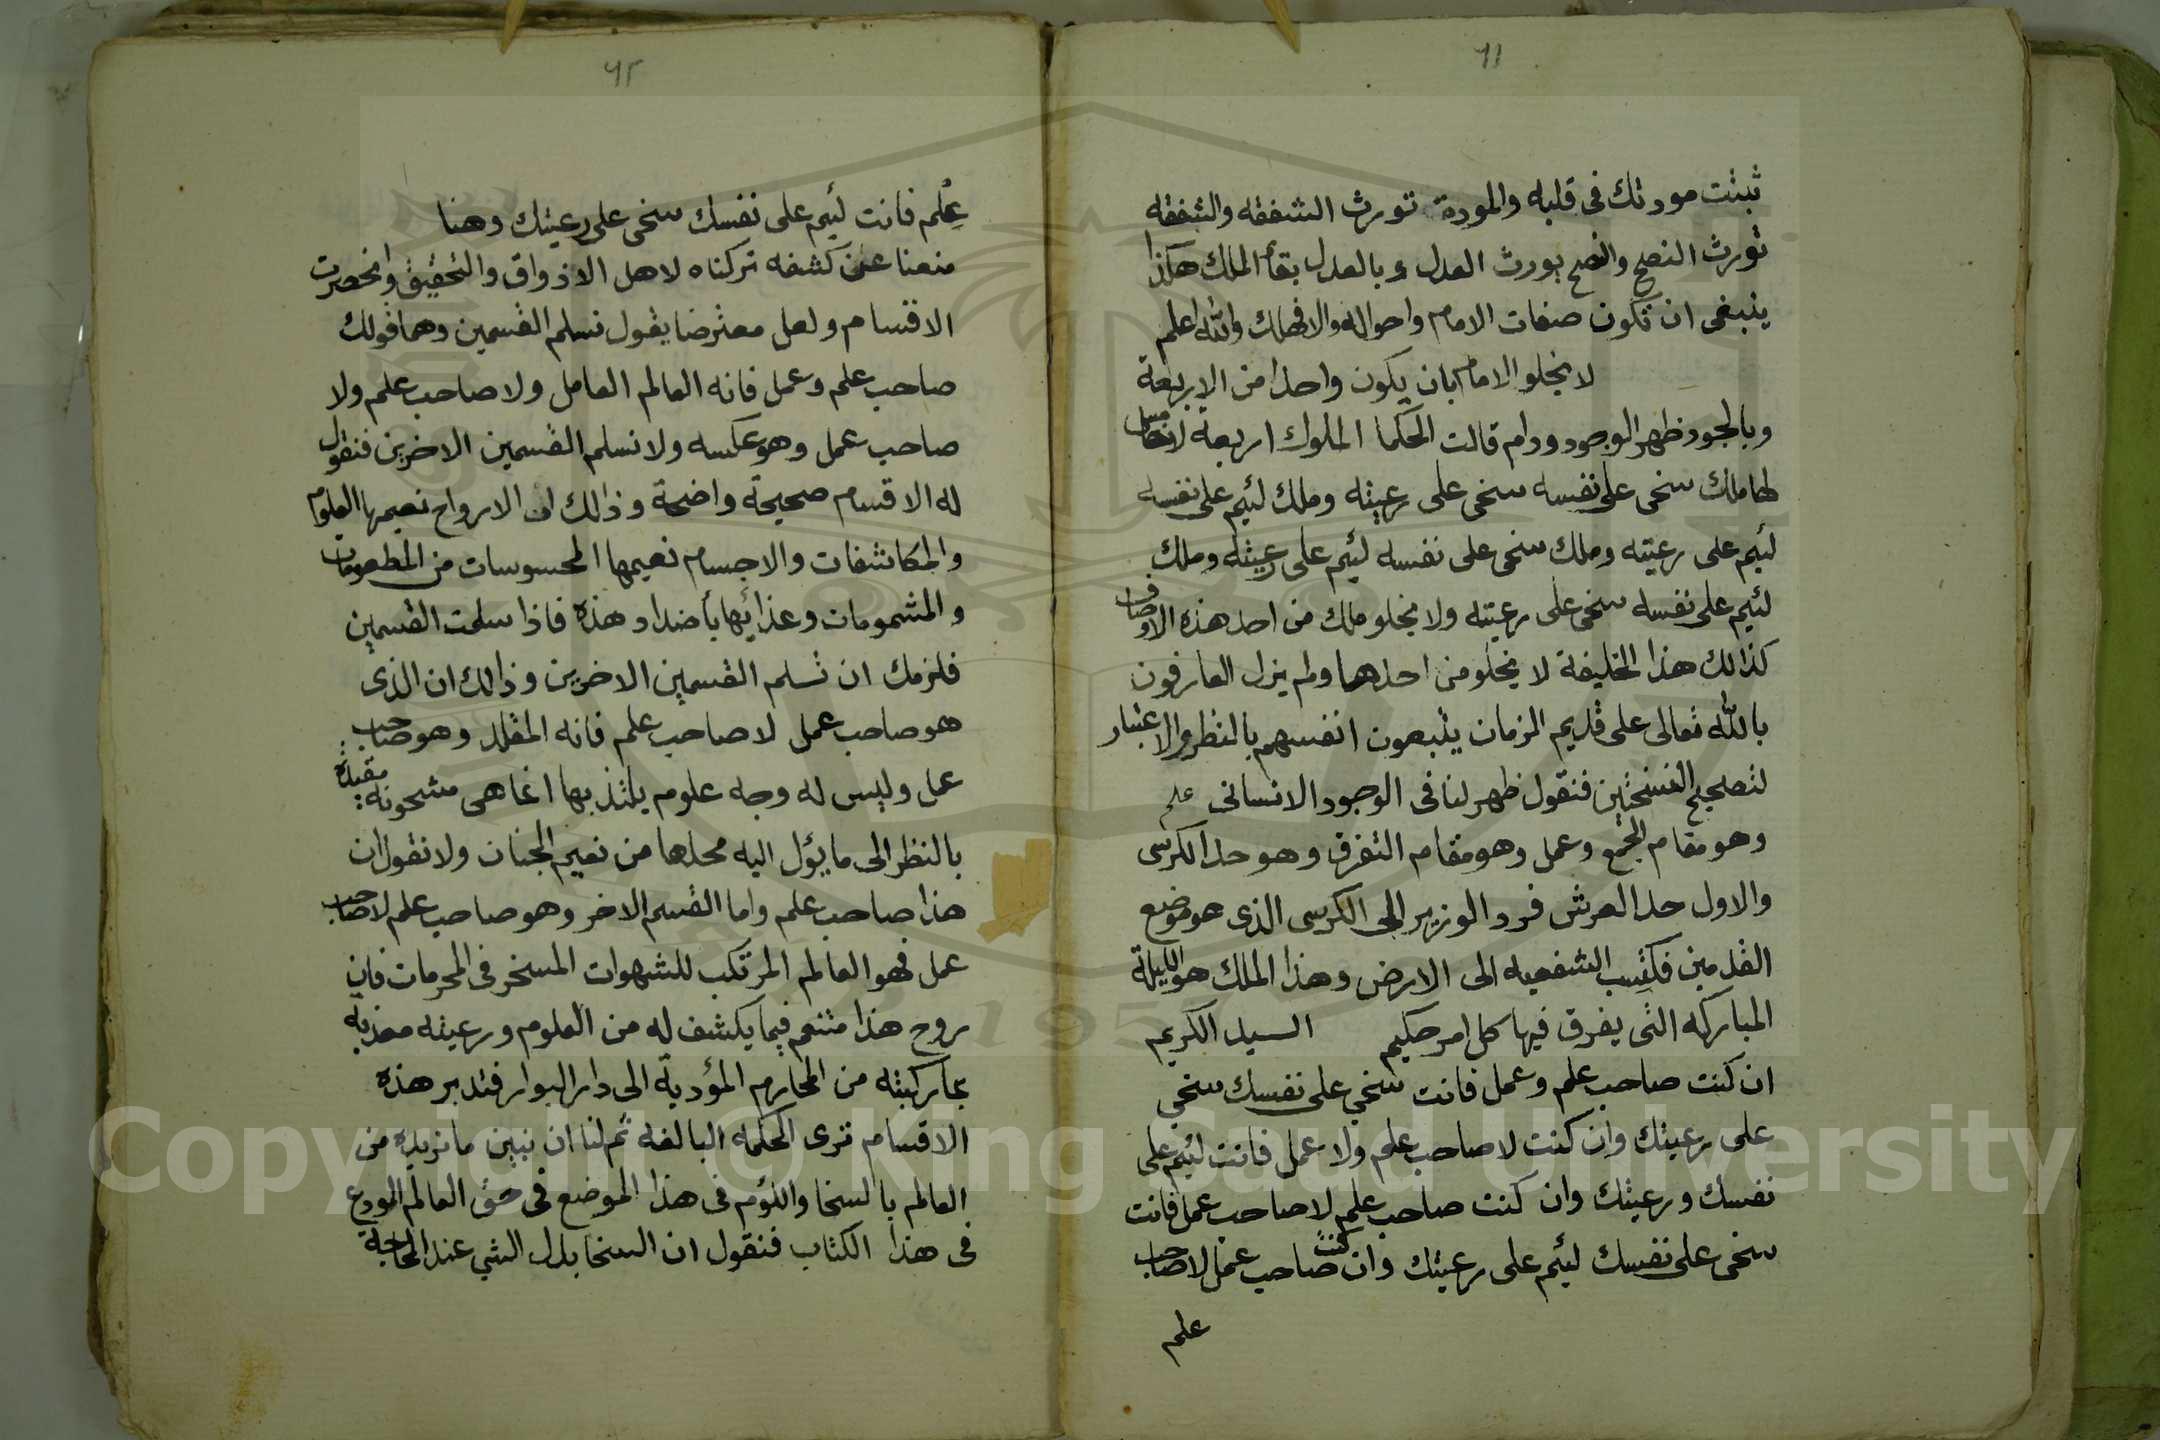 ٦١
ثبتت مودتك فى قلبه والمودة تورث الشفقه والشفقه
تورث النصح والنصح يورث العدل وبالعدل بقآ الملك هكذا
ينبغى ان تكون صفات الامام واحواله والا فهلك والله اعلم
لا يخلو الامام بان يكون واحدا من الاربعة
وبالجود ظهر الوجود ودام قالت الحكما الملوك اربعة لا خامس
لها ملك سخى على نفسه سخى على رعيته وملك لئيم على نفسه
لئيم على رعيته وملك سخى على نفسه لئيم على رعيته وملك
لئيم على نفسه سخى على رعيته ولا يخلو ملك من احد هذه الاوصاف
كذالك هذا الخليفة لا يخلو من احدها ولم يزل العارفون
بالله تعالى على قديم الزمان يتبعون انفسهم بالنظر والاعتبار
لتصحيح النسختين فنقول ظهر لنا فى الوجود الانسانى علم
وهو مقام الجمع وعمل وهو مقام التفرق وهو حد الكرسى
والاول حد العرش فرد الوزير الى الكرسى الذى هو موضع
القدمين فكتب الشفعيه الى الارض وهذا الملك هو الليلة
المباركه التى يفرق فيها كل امر حكيم السيد الكريم
ان كنت صاحب علم وعمل فانت سخي على نفسك سخي
على رعيتك وان كنت لا صاحب علم ولا عمل فانت لئيم على
نفسك ورعيتك وان كنت صاحب علم لا صاحب عمل فانت
سخى على نفسك لئيم على رعيتك وان كنت صاحب عمل لا صاحب
علم
٦٢
علم فانت لئيم على نفسك سخى على رعيتك وهنا
منعنا عن كشفه تركناه لاهل الاذواق والتحقيق وانحصرت
الاقسام ولعل معترضا يقول نسلم القسمين وهما قولك
صاحب علم وعمل فانه العالم العامل ولا صاحب علم ولا
صاحب عمل وهو عكسه ولا نسلم القسمين الاخرين فنقول
له الاقسام صحيحة واضحة وذالك ان الارواح نعيمها العلوم
والمكاشفات والاجسام نعيمها المحسوسات من المطعومات
والمشمومات وعذائها بأضداد هذه فاذا سلمت القسمين
فلزمك ان تسلم القسمين الاخرين وذالك ان الذى
هو صاحب عمل لا صاحب علم فانه المقلد وهو صاحب
عمل وليس له وجه علوم يلتذ بها انما هى مشحونه مقيدة
بالنظر الى ما يؤل اليه محلها من نعيم الجنان ولا نقول ان
هذا صاحب علم واما القسم الاخر وهو صاحب علم لا صاحب
عمل فهو العالم المرتكب للشهوات المسخر فى المحرمات فان
روح هذا متنعم فيما يكشف له من العلوم ورعيته معذبة
بما ركبته من المحارم المؤدية الى دار البوار فتدبر هذه
الاقسام ترى الحكمه البالغه ثم لنا ان نبين ما نريده من
العالم بالسخا واللؤم فى هذا الموضع فى حق العالم المودع
فى هذا الكتاب فنقول ان السخا بذل الشي عند الحاجة
Copyright © King Saud University
1957